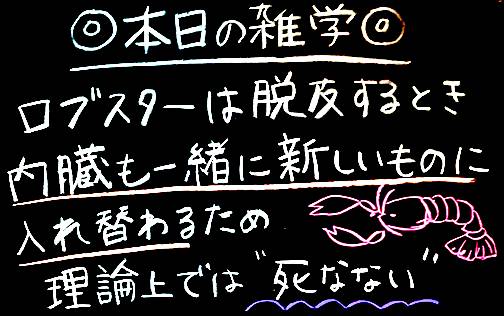 ◎本日の雑学◎
ロブスターは脱皮するとき
内臓も一緒に新しいものに
入れ替わるため
理論上では"死なない"